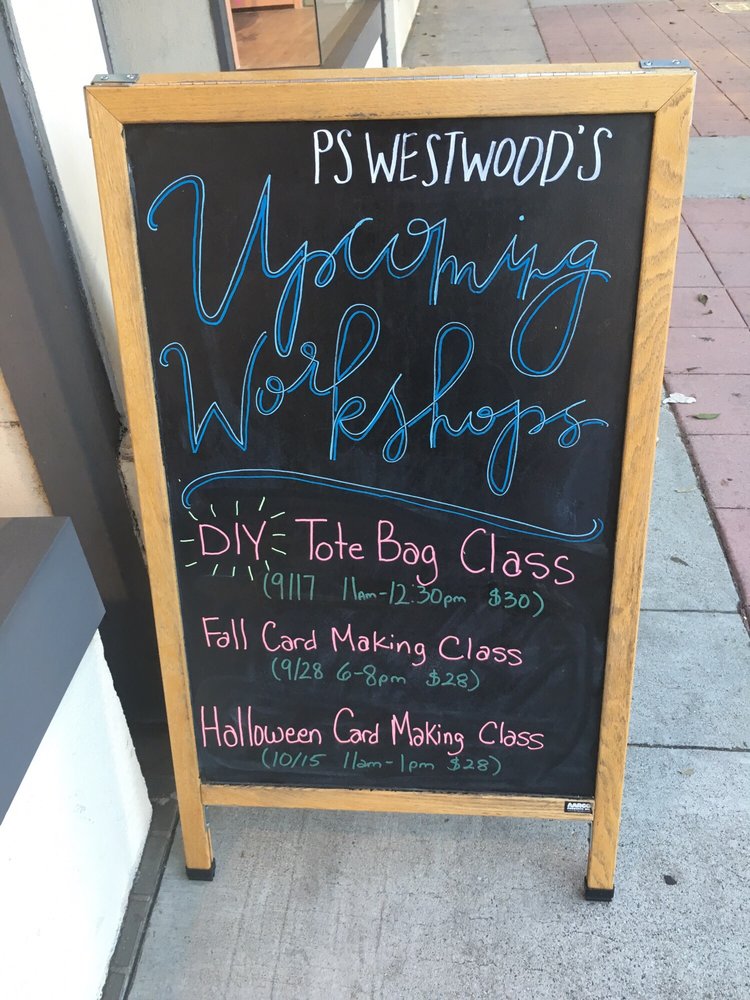 PS WESTWOOD'S
Upcoming
Workshops
DIY Tote Bag Class
(9/17 11am-12:30pm $30)
Fall Card Making Class
(9/28 6-8pm $28)
Halloween Card Making Class
(10/15 11am-1pm $28)
AARCO